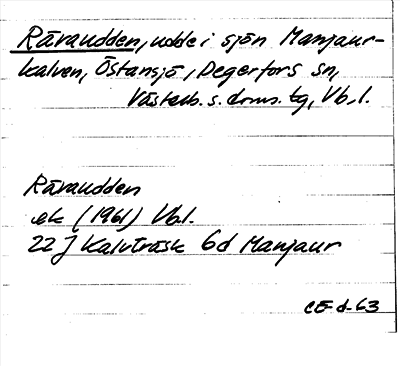 Råraudden, udde i sjön Manjaur-
kalven, Östansjö, Degerfors sn,
Västerb. s. doms. tg, Vb. l.
Råraudden
ek (1961) Vb. l.
22 J Kalvträsk 6d Manjaur
CE-d-63